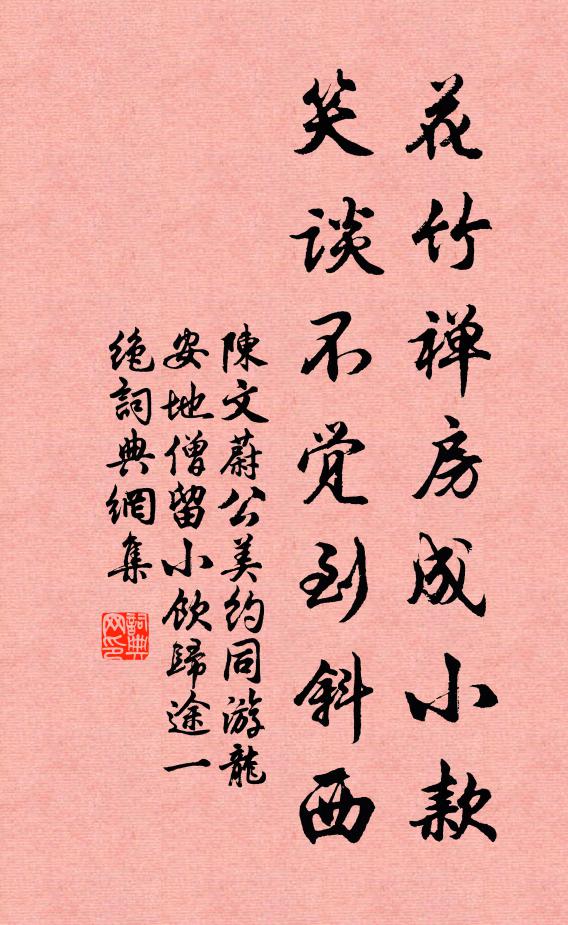 花竹禅房成小款
笑談不觉到斜西
陳文蔚公美約同游龍
安地僧留小飲歸途一
絶詞典網集
詞典
网印